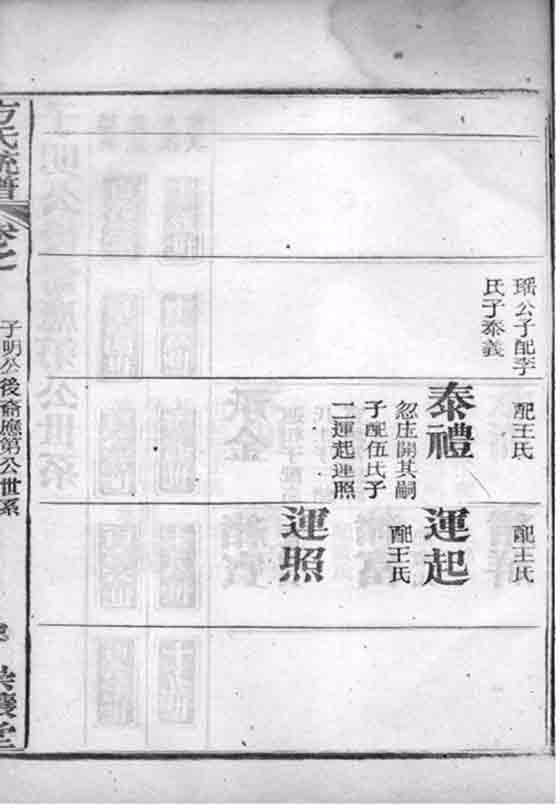 瑶公子配李
氏子泰義
配王氏
泰禮
忽庄開其嗣
子配伍氏子
二運起運照
配王氏
運起
配王氏
運照
方氏統譜
子明公後裔應第公世系